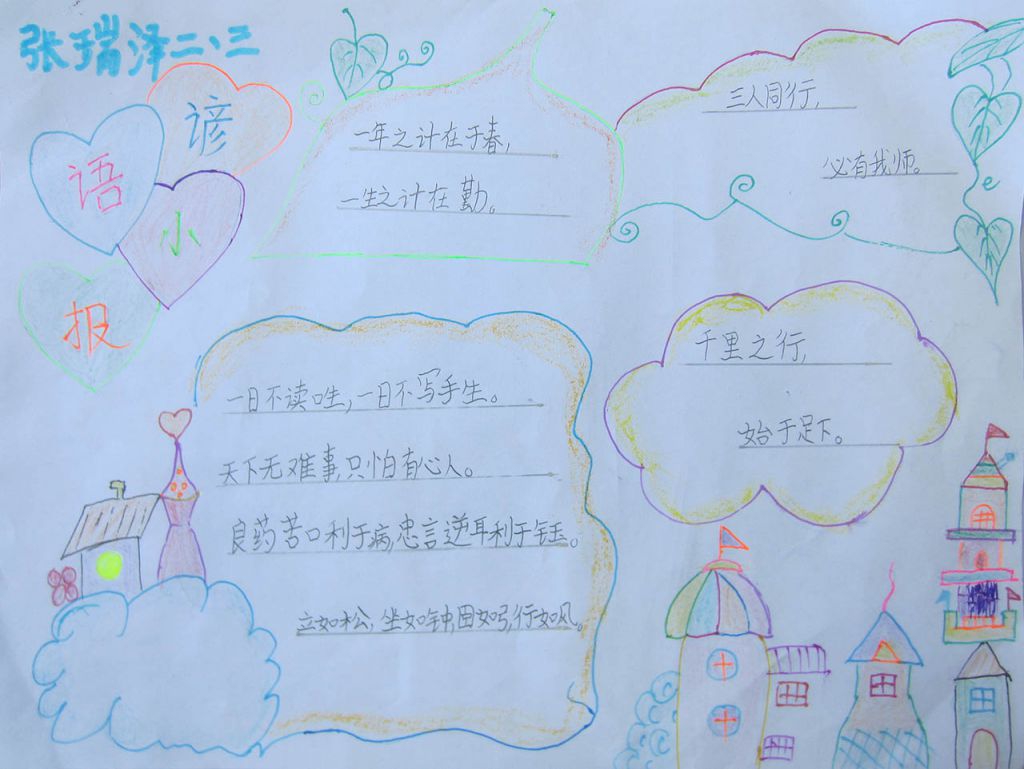 张瑞泽二、三
谚
语
小
报
一年之计在于春,
一生之计在勤。
三人同行,
必有我师。
一日不读口生,一日不写手生。
天下无难事,只怕有心人。
良药苦口利于病,忠言逆耳利于
立如松,坐如钟,卧如弓,行如风。
千里之行,
始于足下。